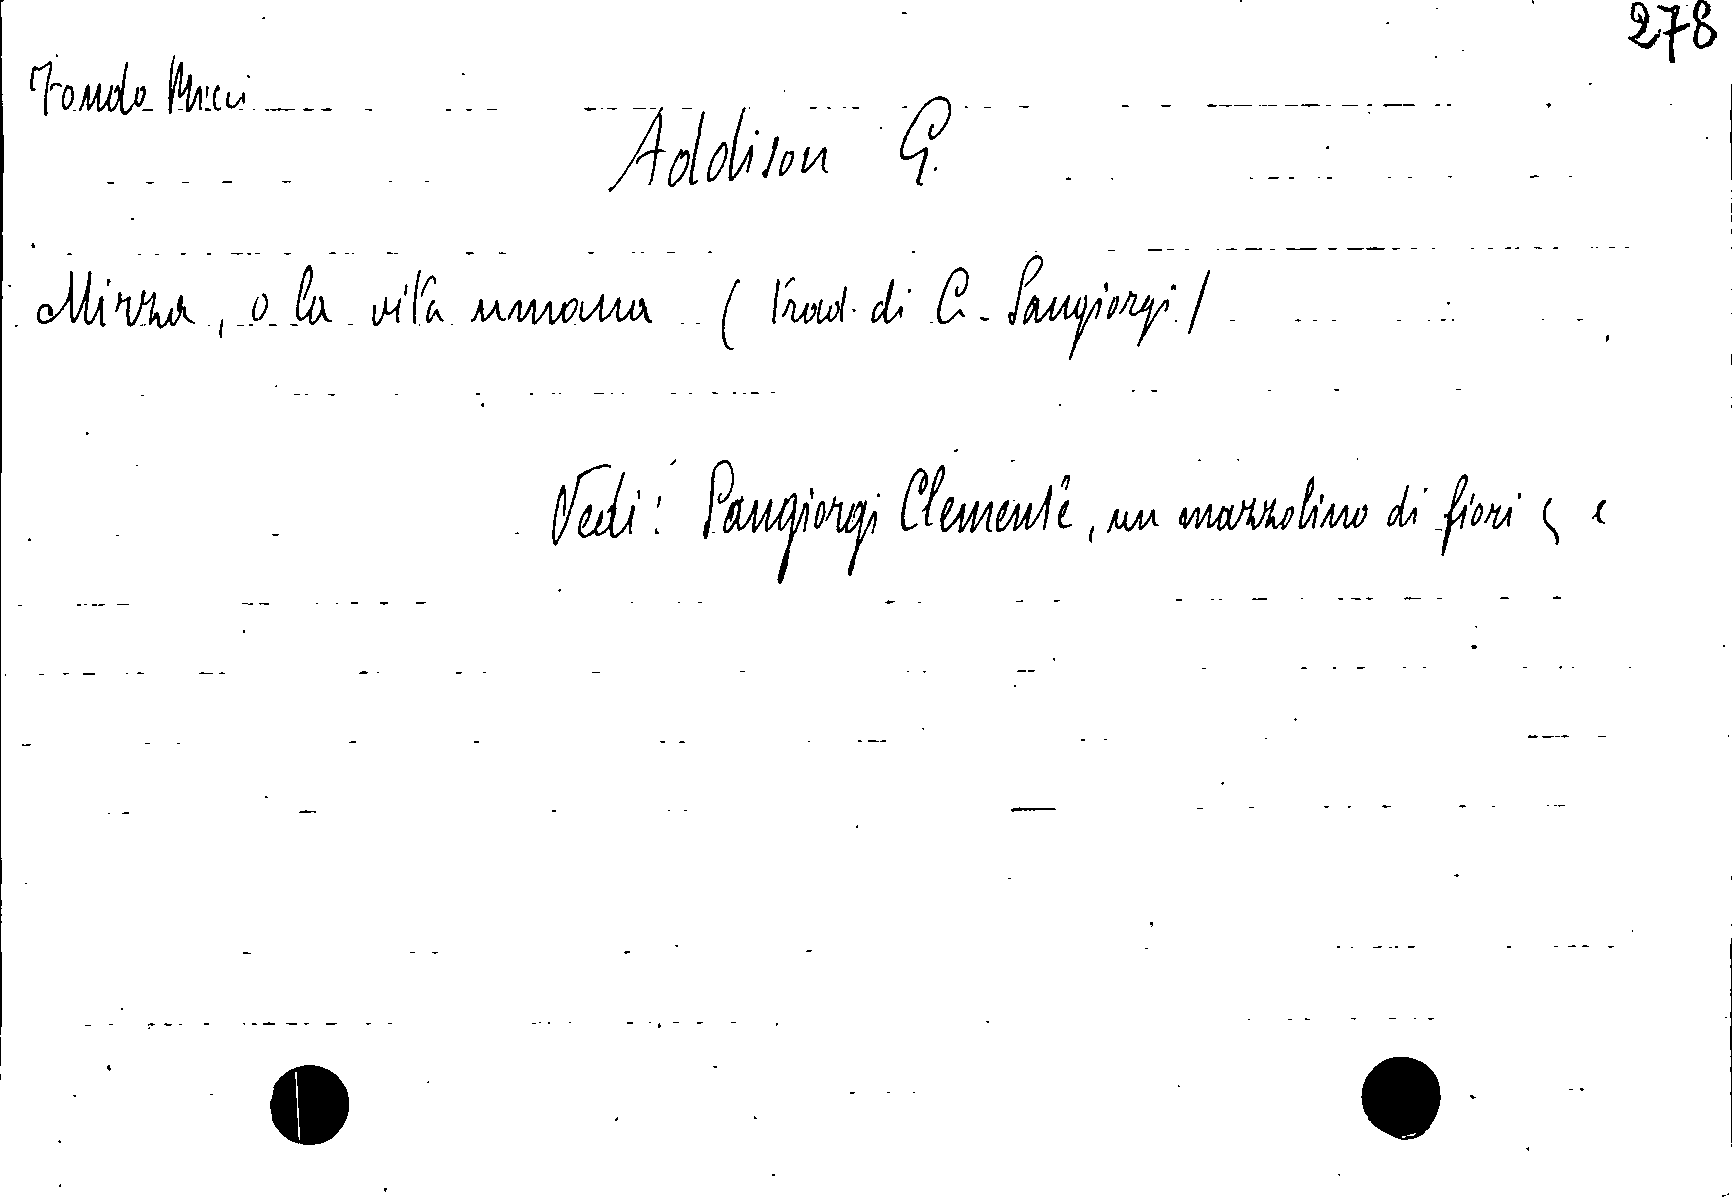 278
Fondo Micci
Addison G.
Mirza, o la vita umana (trad. di C. Sangiorgi)
Vedi: Sangiorgi Clemente, un mazzolino di fiori